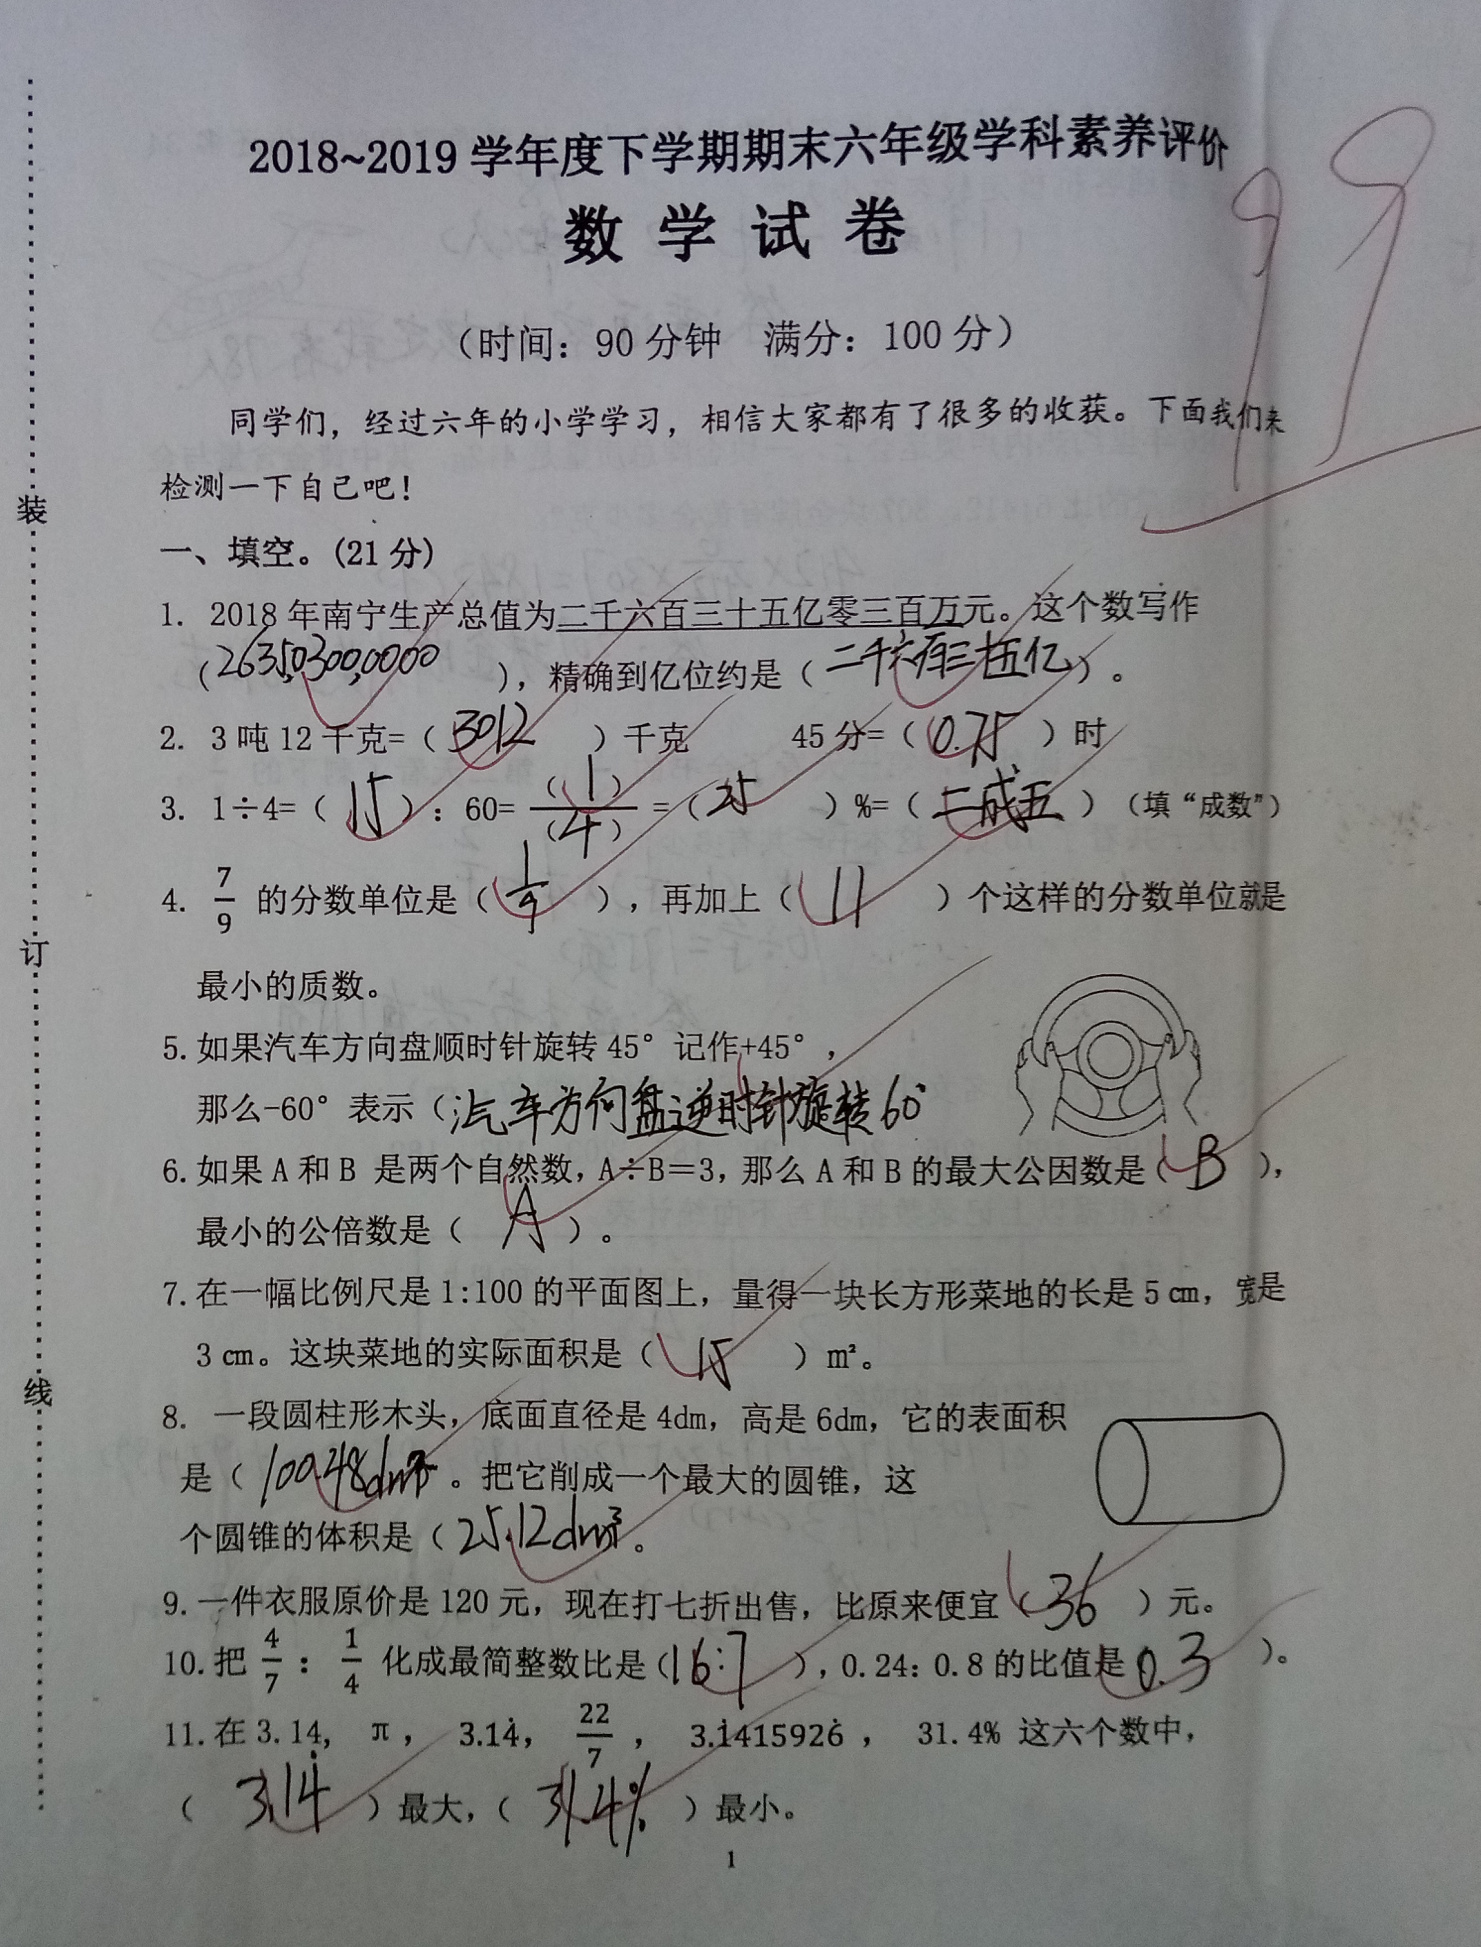 2018~2019学年度下学期期末六年级学科素养评价
99
数 学 试 卷
（时间：90分钟 满分：100分）
同学们，经过六年的小学学习，相信大家都有了很多的收获。下面我们来
检测一下自己吧！
一、填空。(21分)
1. 2018年南宁生产总值为二千六百三十五亿零三百万元。这个数写作
（2635,0300,0000），精确到亿位约是（二千六百三十五亿）。
2. 3吨12千克=（3012）千克 45分=（0.75）时
3. 1÷4=（15）：60=（1）/（4）=（25）%=（二成五）（填“成数”）
4. 7/9 的分数单位是（1/9），再加上（11）个这样的分数单位就是
最小的质数。
5.如果汽车方向盘顺时针旋转45°记作+45°，
那么-60°表示（汽车方向盘逆时针旋转60°
6.如果A和B 是两个自然数，A÷B＝3，那么A和B的最大公因数是（B），
最小的公倍数是（A）。
7.在一幅比例尺是1:100的平面图上，量得一块长方形菜地的长是5㎝，宽是
3㎝。这块菜地的实际面积是（15）m²。
8. 一段圆柱形木头，底面直径是4dm，高是6dm，它的表面积
是（100.48dm²。把它削成一个最大的圆锥，这
个圆锥的体积是（25.12dm³。
9.一件衣服原价是120元，现在打七折出售，比原来便宜（36）元。
10.把 4/7 ： 1/4 化成最简整数比是（16:7），0.24：0.8的比值是0.3）。
11.在3.14， π， 3.14̇， 22/7 ， 3.1̇415926̇ ， 31.4% 这六个数中，
（3.14̇）最大，（31.4%）最小。
1
装
订
线